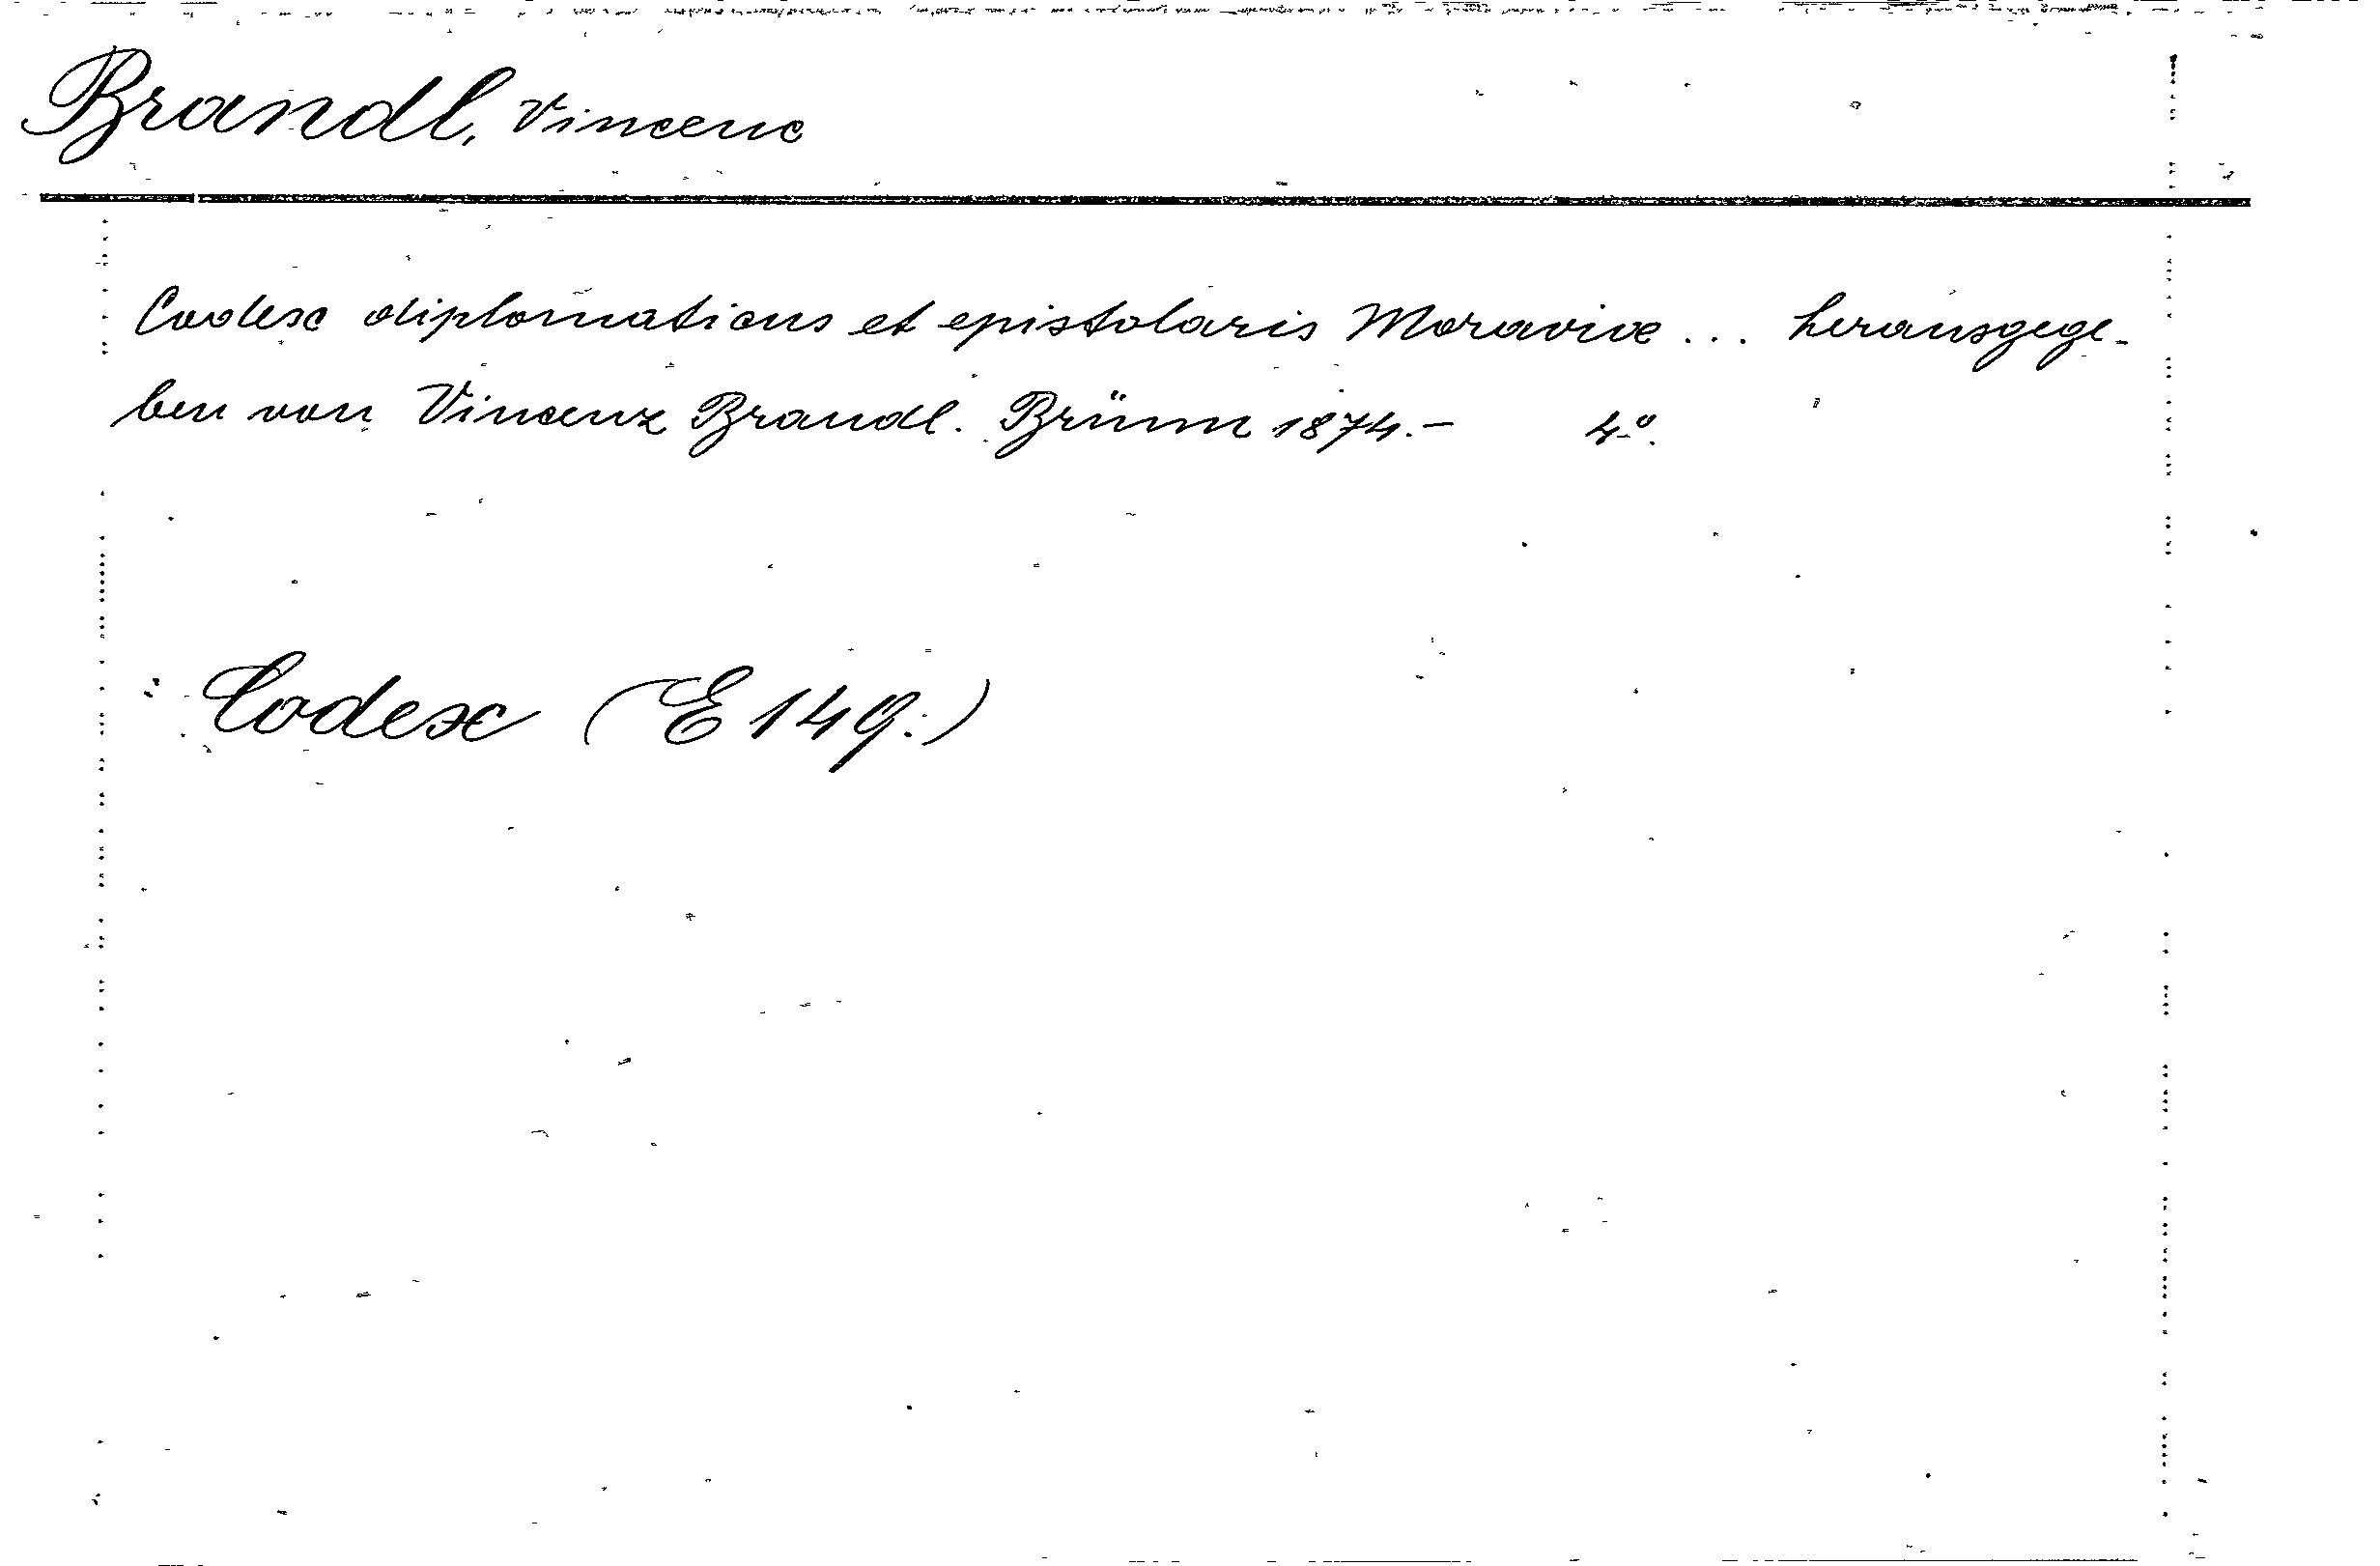 Brandl, Vincenc
Codex diplomaticus et epistolaris Moraviae ... herausgege-
ben von Vincenz Brandl. Brünn 1874.- 4º.
Codex (E 149.)